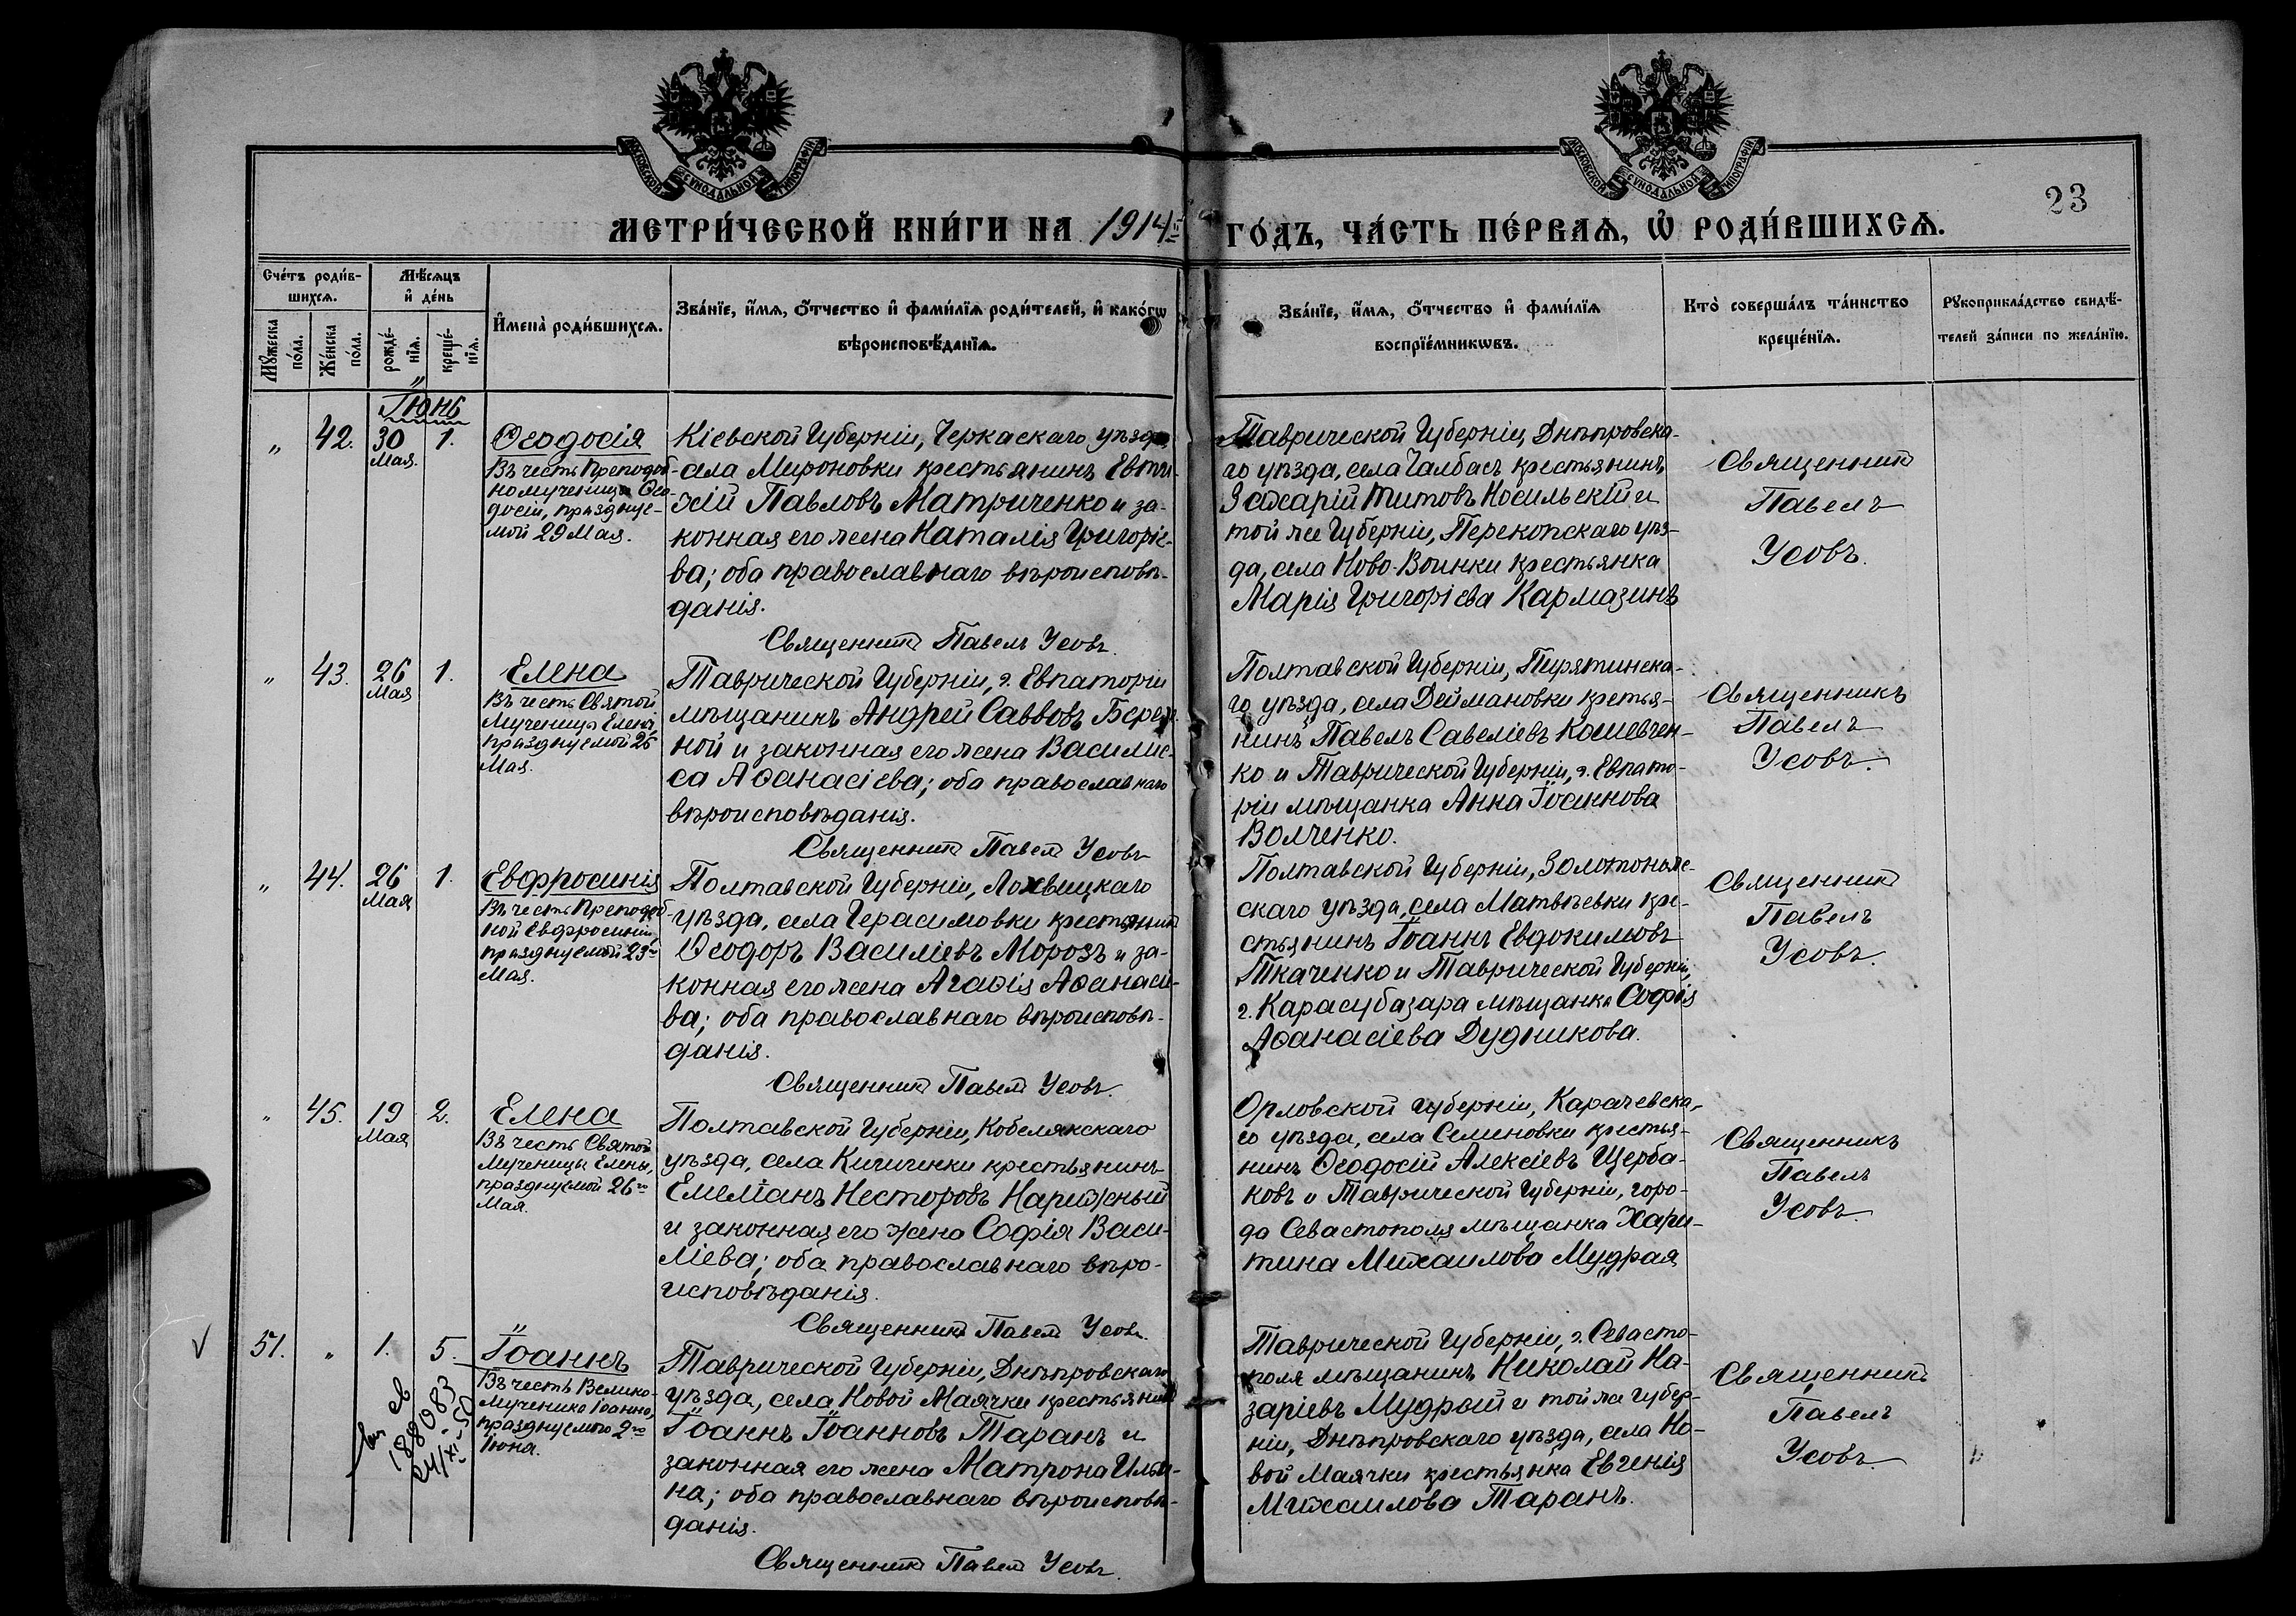 МОСКОВСКОЙ СѴНОДАЛЬНОЙ ТИПОГРАФІИ
МОСКОВСКОЙ СѴНОДАЛЬНОЙ ТИПОГРАФІИ
23
МЕТРИ́ЧЕСКОЙ КНИ́ГИ НА 1914 й ГО́ДЪ, ЧА́СТЬ ПЕ́РВАѦ, Ѡ҆ РОДИ́ВШИХСѦ.
Сче́тъ роди́в-
шихсѧ.
Мѣ́сѧцъ
и҆ де́нь
Мꙋ́жеска
по́ла.
Же́нска
по́ла.
рожде́-
нїѧ.
креще́-
нїѧ.
И҆мена̀ роди́вшихсѧ.
Зва́нїе, и҆́мѧ, ѻ҆́тчество и҆ фами́лїѧ роди́телей, и҆ како́гѡ
вѣроисповѣ́данїѧ.
Зва́нїе, и҆́мѧ, ѻ҆́тчество и҆ фами́лїѧ
воспрїе́мникѡвъ.
Кто̀ соверша́лъ та́инство
креще́нїѧ.
Рꙋкоприкла́дство свидѣ́-
телей за́писи по жела́нїю.
Іюнь
„ 42. 30 1.
Мая.
Ѳеодосія
Въ честь Преподоб-
номученицы Ѳео-
досіи, празднуе-
мой 29 Мая.
Кіевской Губерніи, Черкаскаго уѣзда,
села Мироновки крестьянинъ Евти-
хій Павловъ Матриченко и за-
конная его жена Наталія Григоріе-
ва; оба православнаго вѣроисповѣ-
данія.
Священникъ Павелъ Усовъ.
Таврической Губерніи, Днѣпровска-
го уѣзда, села Чалбасъ крестьянинъ
Захарій Титовъ Носильскій и
той же Губерніи, Перекопскаго уѣз-
да, села Ново-Воинки крестьянка
Марія Григоріева Кармазинъ
Священникъ
Павелъ
Усовъ.
„ 43. 26 1.
Мая
Елена
Въ честь Святой
Мученицы Елены
празднуемой 26
Мая.
Таврической Губерніи, г. Евпаторіи
мѣщанинъ Андрей Саввовъ Береж-
ной и законная его жена Василис-
са Аѳанасіева; оба православнаго
вѣроисповѣданія.
Священникъ Павелъ Усовъ
Полтавской Губерніи, Пирятинска-
го уѣзда, села Деймановки крестья-
нинъ Павелъ Савеліевъ Кошевчен-
ко и Таврической Губерніи, г. Евпато-
ріи мѣщанка Анна Іоаннова
Волченко.
Священникъ
Павелъ
Усовъ.
„ 44. 26 1.
Мая
Евфросинія
Въ честь Преподоб-
ной Евфросиніи,
празднуемой 23го
Мая.
Полтавской Губерніи, Лохвицкаго
уѣзда, села Герасимовки крестьянинъ
Ѳеодоръ Василіевъ Морозъ и за-
конная его жена Агаѳія Аѳанасіе-
ва; оба православнаго вѣроисповѣ-
данія.
Священникъ Павелъ Усовъ.
Полтавской Губерніи, Золотонош-
скаго уѣзда, села Матвѣевки кре-
стьянинъ Іоаннъ Евдокимовъ
Ткаченко и Таврической Губерніи,
г. Карасубазара мѣщанка Софія
Аѳанасіева Дудникова.
Священникъ
Павелъ
Усовъ.
„ 45. 19 2.
Мая
Елена
Въ честь Святой
Мученицы Елены,
празднуемой 26го
Мая.
Полтавской Губерніи, Кобелякскаго
уѣзда, села Кишенки крестьянинъ
Емеліанъ Несторовъ Нарижный
и законная его жена Софія Васи-
ліева; оба православнаго вѣро-
исповѣданія.
Священникъ Павелъ Усовъ.
Орловской Губерніи, Карачевска-
го уѣзда, села Семеновки крестья-
нинъ Ѳеодосій Алексіевъ Щерба-
ковъ и Таврической Губерніи, горо-
да Севастополя мѣщанка Хари-
тина Михаилова Мудрая
Священникъ
Павелъ
Усовъ.
√ 51. „ 1. 5.
Іоаннъ
Въ честь Велико-
мученика Іоанна,
празднуемаго 2го
Іюня.
188083
24/XI-50
Таврической Губерніи, Днѣпровскаго
уѣзда, села Новой Маячки крестьянинъ
Іоаннъ Іоанновъ Таранъ и
законная его жена Матрона Ильи-
на; оба православнаго вѣроисповѣ-
данія.
Священникъ Павелъ Усовъ.
Таврической Губерніи, г. Севасто-
поля мѣщанинъ Николай На-
заріевъ Мудрый и той же Губер-
ніи, Днѣпровскаго уѣзда, села Но-
вой Маячки крестьянка Евгенія
Михаилова Таранъ.
Священникъ
Павелъ
Усовъ.